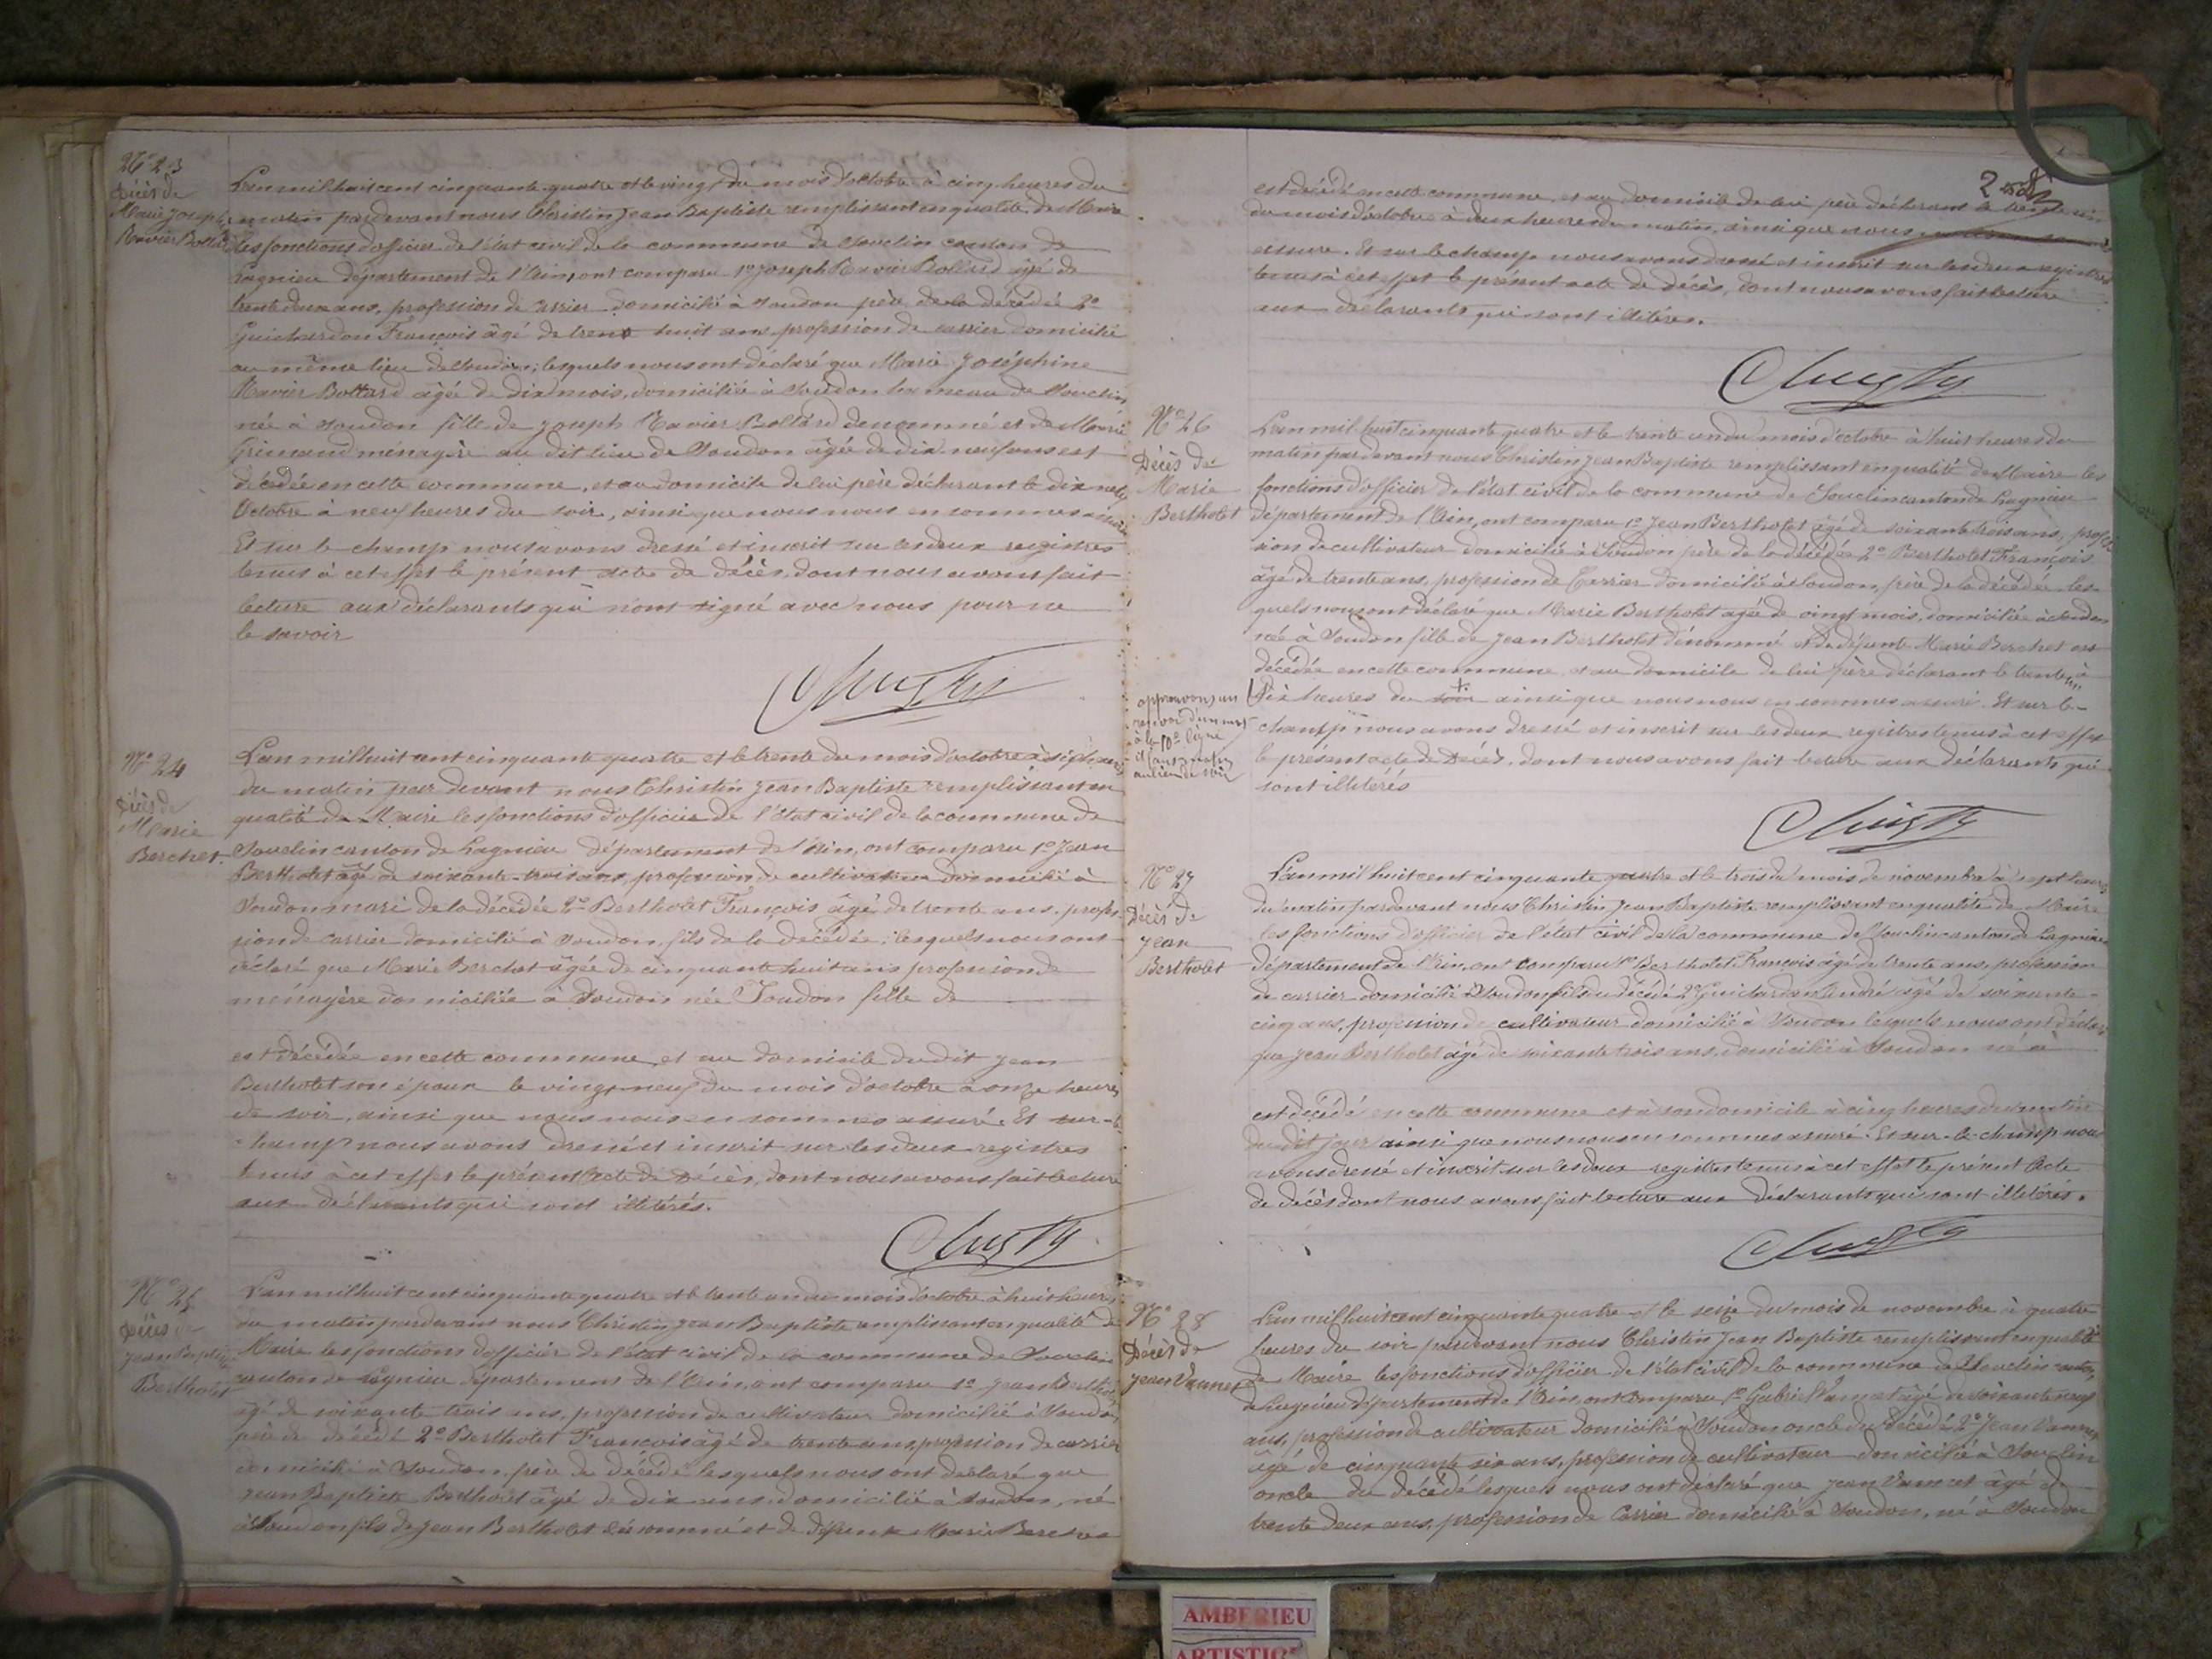 N° 23
Décès de
Marie Joseph
Ravier Bottard
L'an mil huit cent cinquante quatre et le vingt du mois d'octobre à cinq heures du
matin pardevant nous Christin Jean Baptiste remplissant en qualité de Maire
les fonctions d'officier de l'état civil de la commune de Souclin canton de
Lagnieu département de l'Ain, ont comparu 1° Joseph Ravier Bottard âgé de
trente deux ans, profession de carrier domicilié à Soudon père de la décédée 2°
Guichardon François âgé de trente huit ans profession de carrier domicilié
au même lieu de Soudon; lesquels nous ont déclaré que Marie Joséphine
Ravier Bottard âgé de dix mois, domiciliée à Soudon hameau de Souclin,
née à Soudon fille de Joseph Ravier Bottard dénommé et de Marie
Grimaud ménagère au dit lieu de Soudon âgée de dix neuf ans est
décédée en cette commune, et au domicile de lui père déclarant le dix neuf
Octobre à neuf heures du soir, ainsi que nous nous en sommes assuré
Et sur le champ nous avons dressé et inscrit sur les deux registres
tenus à cet effet le présent acte de décès, dont nous avons fait
lecture aux déclarants qui n'ont signé avec nous pour ne
le savoir
N° 24
Décès de
Marie
Berchet
L'an mil huit cent cinquante quatre et le trente du mois d'octobre à sept heures
du matin par devant nous Christin Jean Baptiste remplissant en
qualité de Maire les fonctions d'officier de l'état civil de la commune de
Souclin canton de Lagnieu département de l'Ain, ont comparu 1° Jean
Bertholet âgé de soixante-trois ans, profession de cultivateur domicilié à
Soudon mari de la décédée 2° Bertholet François âgé de trente ans, profes-
sion de carrier domicilié à Soudon, fils de la décédée; lesquels nous ont
déclaré que Marie Berchet âgée de cinquante huit ans profession de
ménagère domiciliée à Soudon née Soudon fille de
est décédée en cette commune, et au domicile du dit Jean
Bertholet son époux le vingt neuf du mois d'octobre à onze heures
de soir, ainsi que nous nous en sommes assuré. Et sur-le
champ nous avons dressé et inscrit sur les deux registres
tenus à cet effet le présent Acte de Décès, dont nous avons fait lecture
aux déclarants qui sont illétérés.
N° 25
Décès de
Jean Baptiste
Bertholet
L'an mil huit cent cinquante quatre et le trente un du mois d'octobre à huit heures
du matin pardevant nous Christin Jean Baptiste remplissant en qualité de
Maire les fonctions d'officier de l'état civil de la commune de Souclin
canton de Lagnieu département de l'Ain, ont comparu 1° Jean Bertholet
âgé de soixante trois ans, profession de cultivateur domicilié à Soudon
père de décédé 2° Bertholet François âgé de trente ans, profession de carrier
domicilié à Soudon, frère de décédé lesquels nous ont déclaré que
Jean Baptiste Bertholet âgé de dix ans domicilié à Soudon, né
à Soudon fils de Jean Bertholet dénommé et de défunte Marie Berchet
est décédé en cette commune, et au domicile de lui père déclarant le trente un
du mois d'octobre à deux heures du matin, ainsi que nous
assuré. Et sur le champ nous avons dressé et inscrit sur les deux registres
tenus à cet effet le présent acte de décès, dont nous avons fait lecture
aux déclarants qui sont illétérés.
N° 26
Décès de
Marie
Bertholet
L'an mil huit cinquante quatre et le trente un du mois d'octobre à huit heures du
matin pardevant nous Christin Jean Baptiste remplissant en qualité de Maire les
fonctions d'officier de l'état civil de la commune de Souclin canton de Lagnieu
département de l'Ain, ont comparu 1° Jean Bertholet âgé de soixante trois ans, profes
sion de cultivateur domicilié à Soudon père de la décédée 2° Bertholet François
âgé de trente ans, profession de Carrier domicilié à Soudon, frère de la décédée les-
quels nous ont déclaré que Marie Bertholet âgée de cinq mois, domiciliée à Soudon
née à Soudon fille de Jean Bertholet dénommé et de défunte Marie Berchet est
décédée en cette commune et au domicile de lui père déclarant le trente un à
dix heures du soir ainsi que nous nous en sommes assuré. Et sur le-
champ nous avons dressé et inscrit sur les deux registres tenus à cet effet
le présent acte de Décès, dont nous avons fait lecture aux déclarants qui
sont illétérés
approuvons un
renvoi d'un mot
à la 10e ligne
il faut matin
au lieu de soir
N° 27
Décès de
Jean
Bertholet
L'an mil huit cent cinquante quatre et le trois du mois de novembre à sept heures
du matin pardevant nous Christin Jean Baptiste remplissant en qualité de Maire
les fonctions d'officier de l'état civil de la commune de Souclin canton de Lagnieu
département de l'Ain, ont comparu 1° Bertholet François âgé de trente ans, profession
de carrier domicilié à Soudon fils du décédé 2° Guichardon André âgé de soixante-
cinq ans, profession de cultivateur domicilié à Soudon lesquels nous ont déclaré
que Jean Bertholet âgé de soixante trois ans, domicilié à Soudon né à
est décédé en cette commune et à son domicile à cinq heures du matin
du dit jour ainsi que nous nous en sommes assuré. Et sur-le-champ nous
avons dressé et inscrit sur les deux registres tenus à cet effet le présent Acte
de décès dont nous avons fait lecture aux déclarants qui sont illétérés.
N° 28
Décès de
Jean Vannet
L'an mil huit cent cinquante quatre et le seize du mois de novembre à quatre
heures du soir pardevant nous Christin Jean Baptiste remplissant en qualité
de Maire les fonctions d'officier de l'état civil de la commune de Souclin canton
de Lagnieu département de l'Ain, ont comparu 1° Gabriel Vannet âgé de soixante neuf
ans, profession de cultivateur domicilié à Soudon oncle du décédé 2° Jean Vannet
âgé de cinquante six ans, profession de cultivateur domicilié à Souclin
oncle du décédé lesquels nous ont déclaré que Jean Vannet âgé de
trente deux ans, profession de Carrier domicilié à Soudon, né à Soudon
AMBERIEU
ARTISTIC